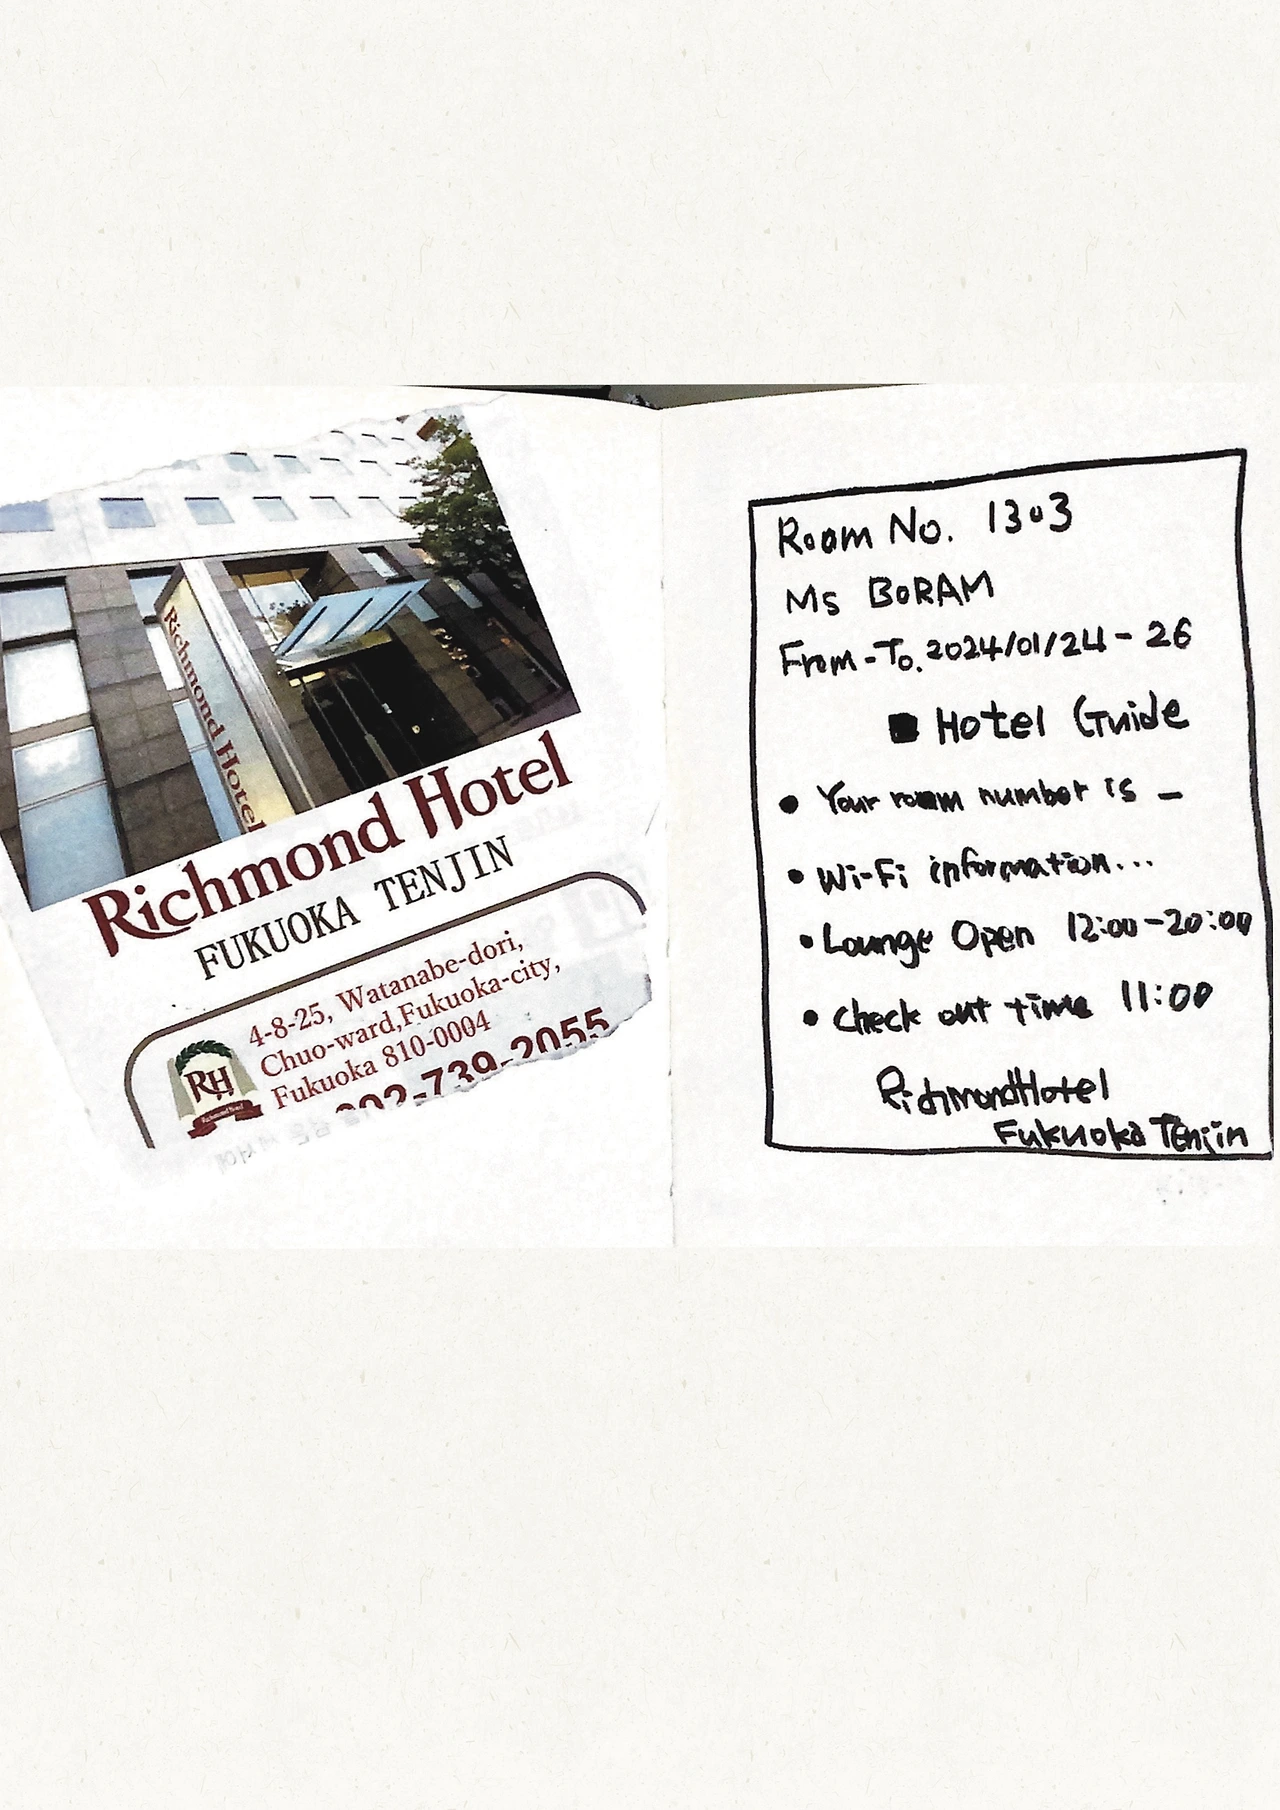 Richmond Hotel
Richmond Hotel
FUKUOKA TENJIN
4-8-25, Watanabe-dori,
Chuo-ward,Fukuoka-city,
Fukuoka 810-0004
RH
Richmond Hotel
Room No. 1303
Ms BORAM
From-To. 2024/01/24-26
■ Hotel Guide
• Your room number is _
• Wi-Fi information...
• Lounge Open 12:00-20:00
• Check out time 11:00
RichmondHotel
Fukuoka Tenjin